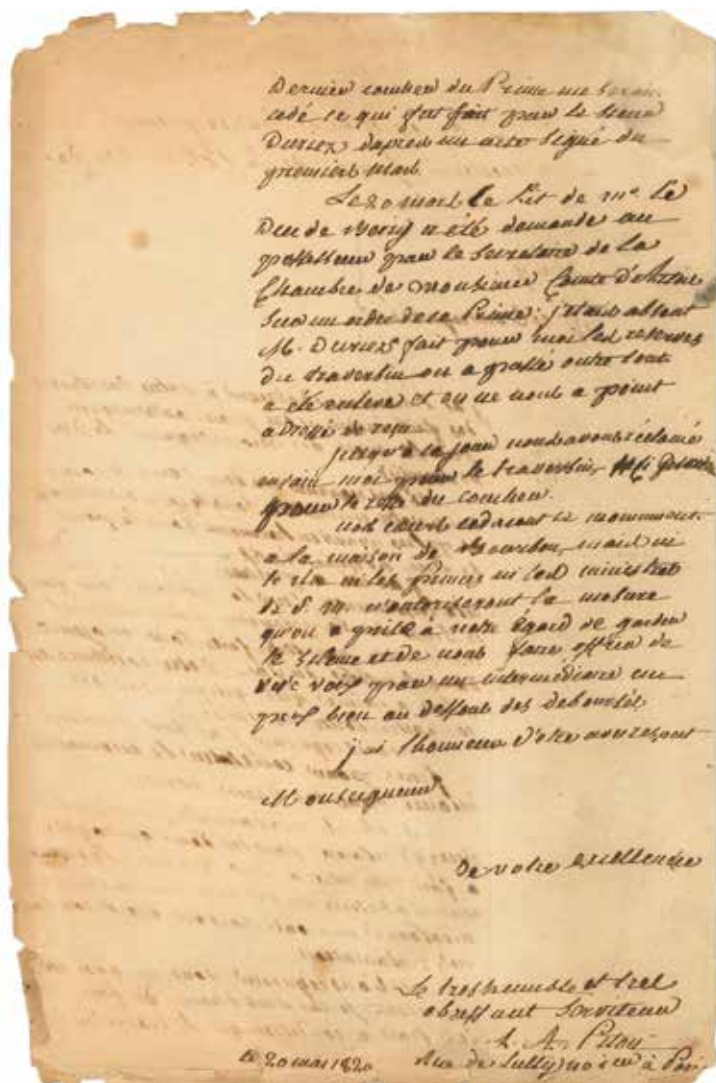 Dernier coucher du Prince me seroit
cédé ce qui fut fait par le sieur
Duriez d'après un acte signé du
premier mars.
Le 20 mars le Lit de mgr Le
Duc de Berry a été demandé au
possesseur par le Secretaire de La
Chambre de Monsieur Comte d'Artois
sur un ordre de ce Prince: j'etais absent
M. Duriez fait pour moi les reserves
du traversin on a passé outre tout
a été enlevé et on ne nous a point
adressé de reçu.
jusqu'à ce jour nous avons réclamé
en vain moi pour le traversin,
pour le reste du coucher.
nos cœurs cederont ce monument
a la maison de Bourbon, mais ni
le Roi ni les Princes ni les ministres
de S. M. n'autoriseront la mesure
qu'on a prise à notre égard de garder
le silence et de nous faire offrir de
vive voix par un intermédiaire un
prix bien au dessous des deboursés
j'ai l'honneur d'etre avec respect
Monseigneur
De votre excellence
Le tres humble et tres
obeissant Serviteur
L. A. Pitou
le 20 mai 1820 Rue de Lully à Paris